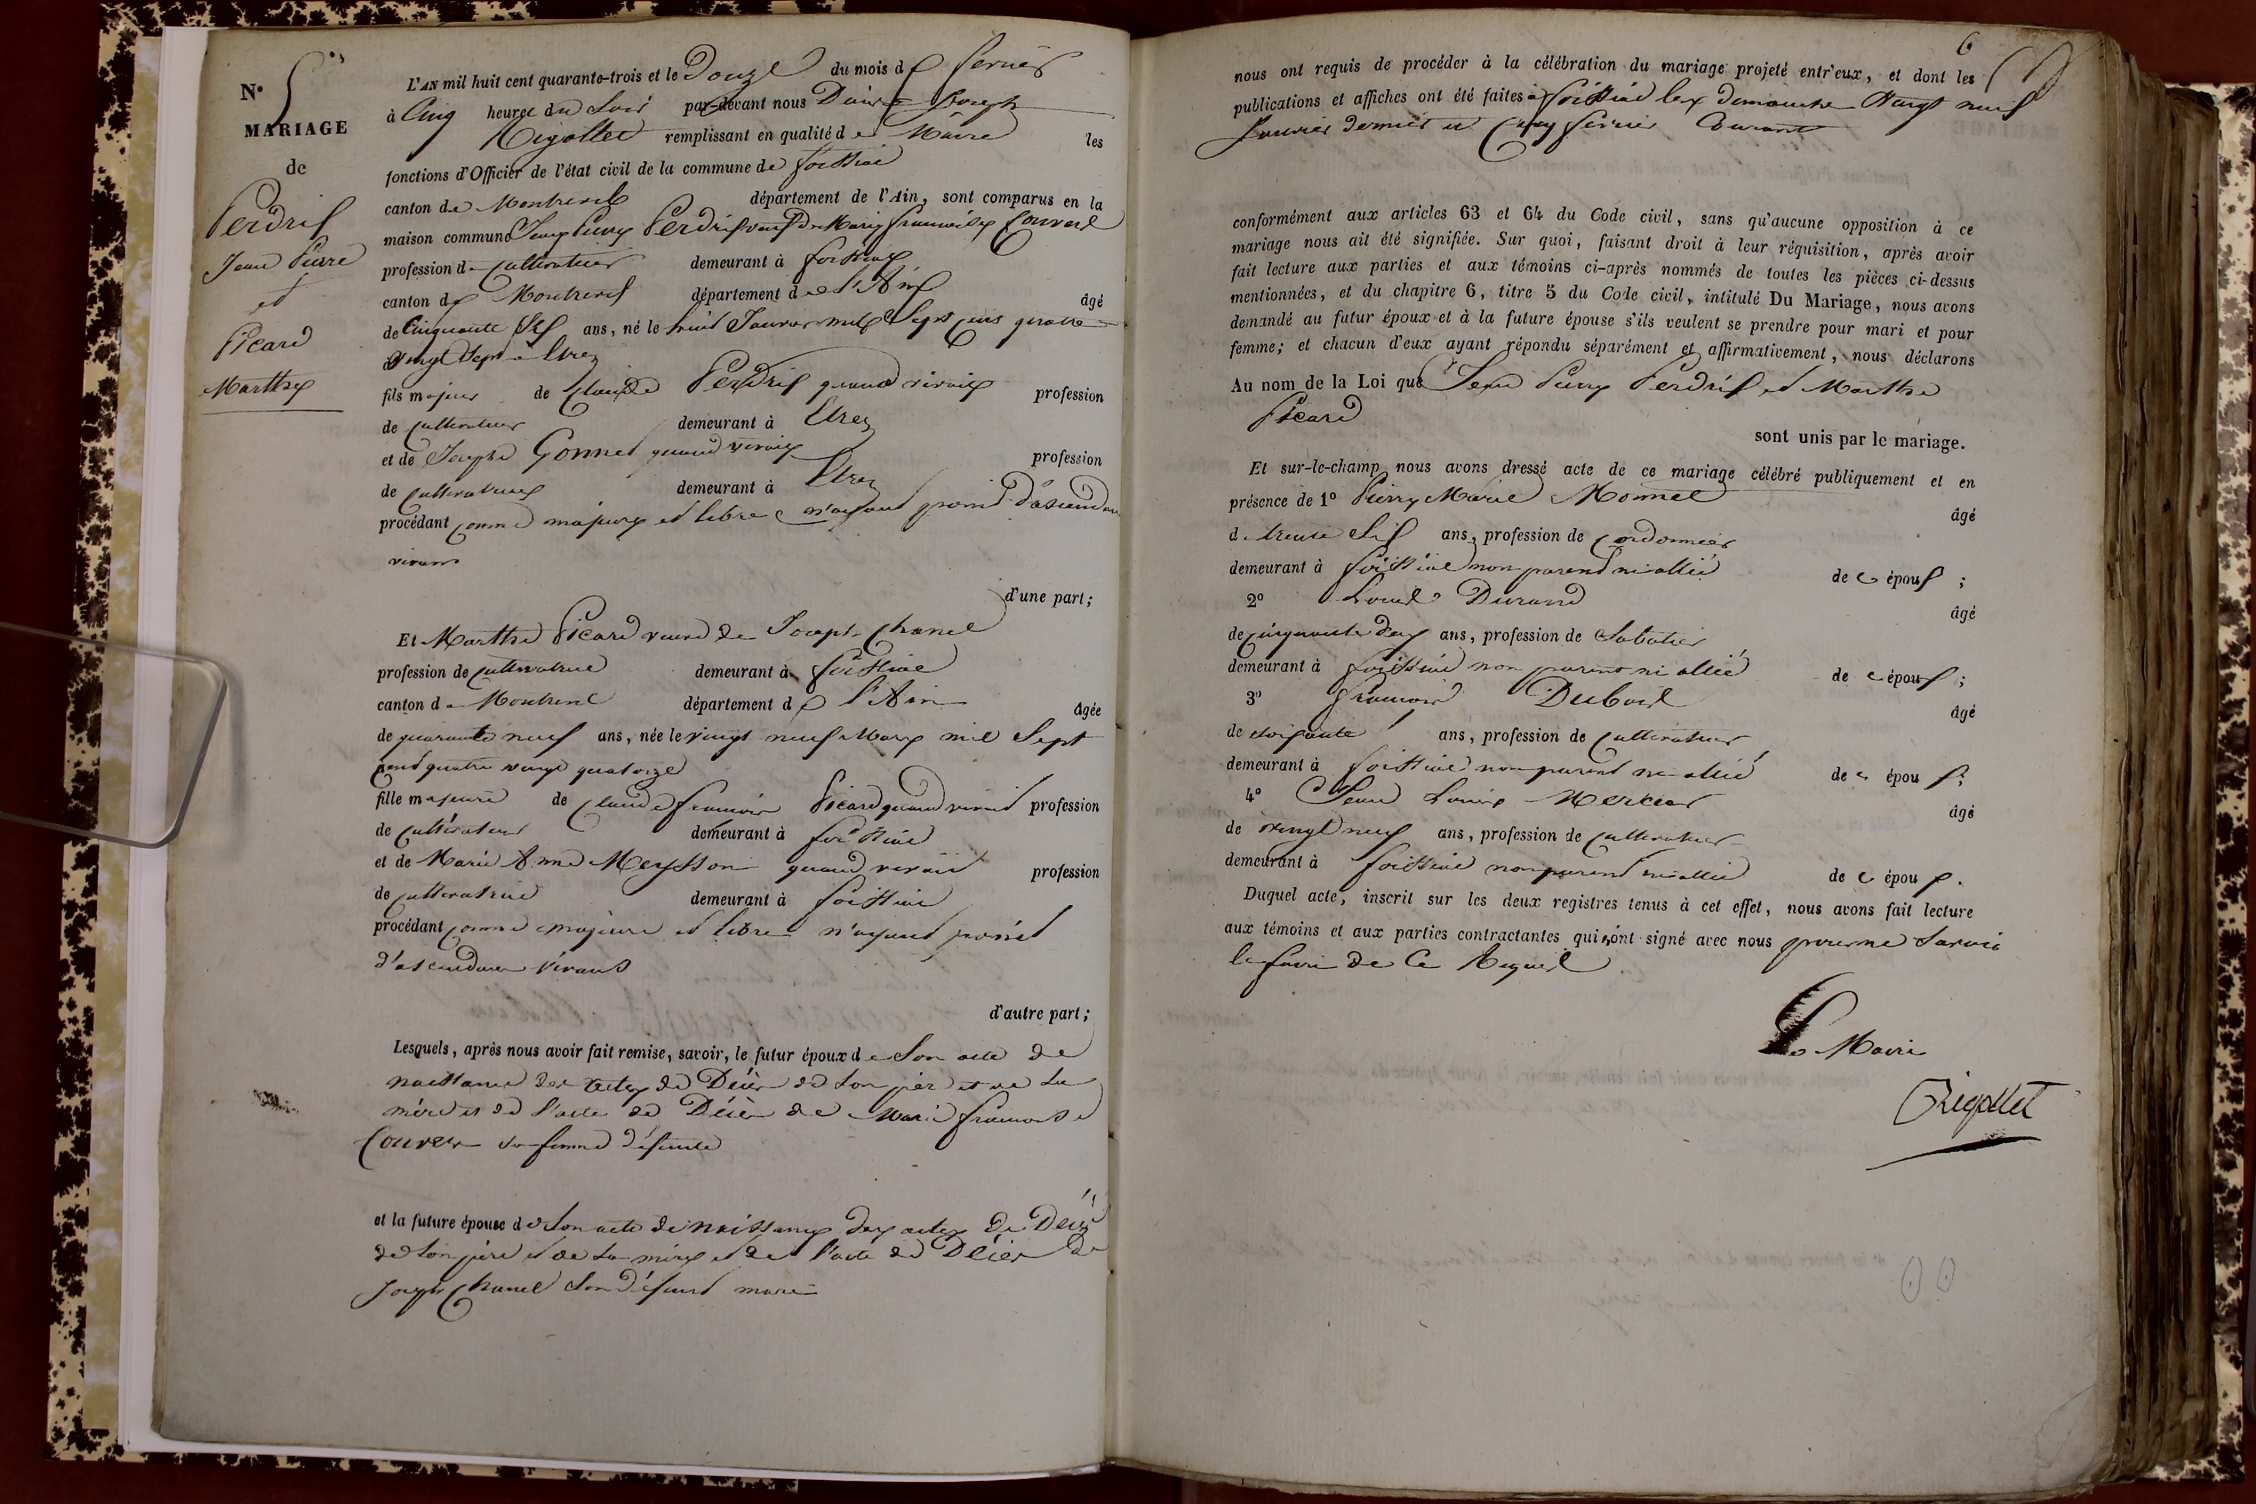 N° 5
MARIAGE
de
Perdrix
Jean Pierre
et
Picard
Marthe
L'AN mil huit cent quarante-trois et le Douze du mois de fevrier
à Cinq heures du Soir par-devant nous Joseph
Rigollet remplissant en qualité de Maire les
fonctions d'Officier de l'état civil de la commune de foissiat
canton de Montrevel département de l'Ain, sont comparus en la
maison commune Jean Pierre Perdrix veuf De Marie francoise Couvert
profession de Cultivateur demeurant à foissiat
canton de Montrevel département de l'Ain âgé
de Cinquante Six ans, né le huit Janvier mil Sept cens quatre
vingt Sept à Etrez
fils majeur de Claude Perdrix quand vivait profession
de Cultivateur demeurant à Etrez
et de Josephe Gonnet quand vivait profession
de Cultivatrice demeurant à Etrez
procédant comme majeur et libre n'ayant point d'ascendans
vivans
d'une part;
Et Marthe Picard veuve de Joseph Chanel
profession de Cultivatrice demeurant à foissiat
canton de Montrevel département de l'Ain âgée
de quarante neuf ans, née le vingt neuf Mars mil Sept
Cent quatre vingt quatorze
fille majeure de Claude francois Picard quand vivait profession
de Cultivateur demeurant à foissiat
et de Marie Anne Meysson quand vivait profession
de Cultivatrice demeurant à foissiat
procédant comme majeure et libre n'ayant point
d'ascendans vivans
d'autre part;
Lesquels, après nous avoir fait remise, savoir, le futur époux de Son acte de
naissance des actes de Décès de son père et de sa
mère et de l'acte de Décès de Marie francoise
Couvert sa femme défunte
et la future épouse de Son acte de naissance des actes de Décès
de son père et de sa mère et de l'acte de Décès de
Joseph Chanel Son défunt mari
6
nous ont requis de procéder à la célébration du mariage projeté entr'eux, et dont les
publications et affiches ont été faites à foissiat les dimanche Vingt neuf
Janvier dernier et Cinq fevrier Courant
conformément aux articles 63 et 64 du Code civil, sans qu'aucune opposition à ce
mariage nous ait été signifiée. Sur quoi, faisant droit à leur réquisition, après avoir
fait lecture aux parties et aux témoins ci-après nommés de toutes les pièces ci-dessus
mentionnées, et du chapitre 6, titre 5 du Code civil, intitulé Du Mariage, nous avons
demandé au futur époux et à la future épouse s'ils veulent se prendre pour mari et pour
femme; et chacun d'eux ayant répondu séparément et affirmativement, nous déclarons
Au nom de la Loi que Jean Pierre Perdrix et Marthe
Picard
sont unis par le mariage.
Et sur-le-champ nous avons dressé acte de ce mariage célébré publiquement et en
présence de 1° Pierre Marie Monnet âgé
de trente Six ans, profession de Cordonnier
demeurant à foissiat non parent ni allié de c époux ;
2° Louis Durand âgé
de Cinquante deux ans, profession de Sabotier
demeurant à foissiat non parent ni allié de c époux ;
3° francois Dubois âgé
de soixante ans, profession de Cultivateur
demeurant à foissiat non parent ni allié de c époux ;
4° Jean Louis Mercier âgé
de vingt neuf ans, profession de Cultivateur
demeurant à foissiat non parent ni allié de c époux.
Duquel acte, inscrit sur les deux registres tenus à cet effet, nous avons fait lecture
aux témoins et aux parties contractantes qui n'ont signé avec nous pour ne savoir
le faire de Ce Requis
Le Maire
Rigollet